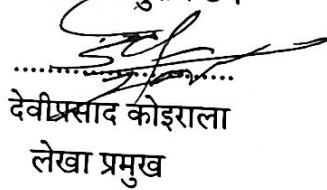 देवीप्रसाद कोइराला
लेखा प्रमुख